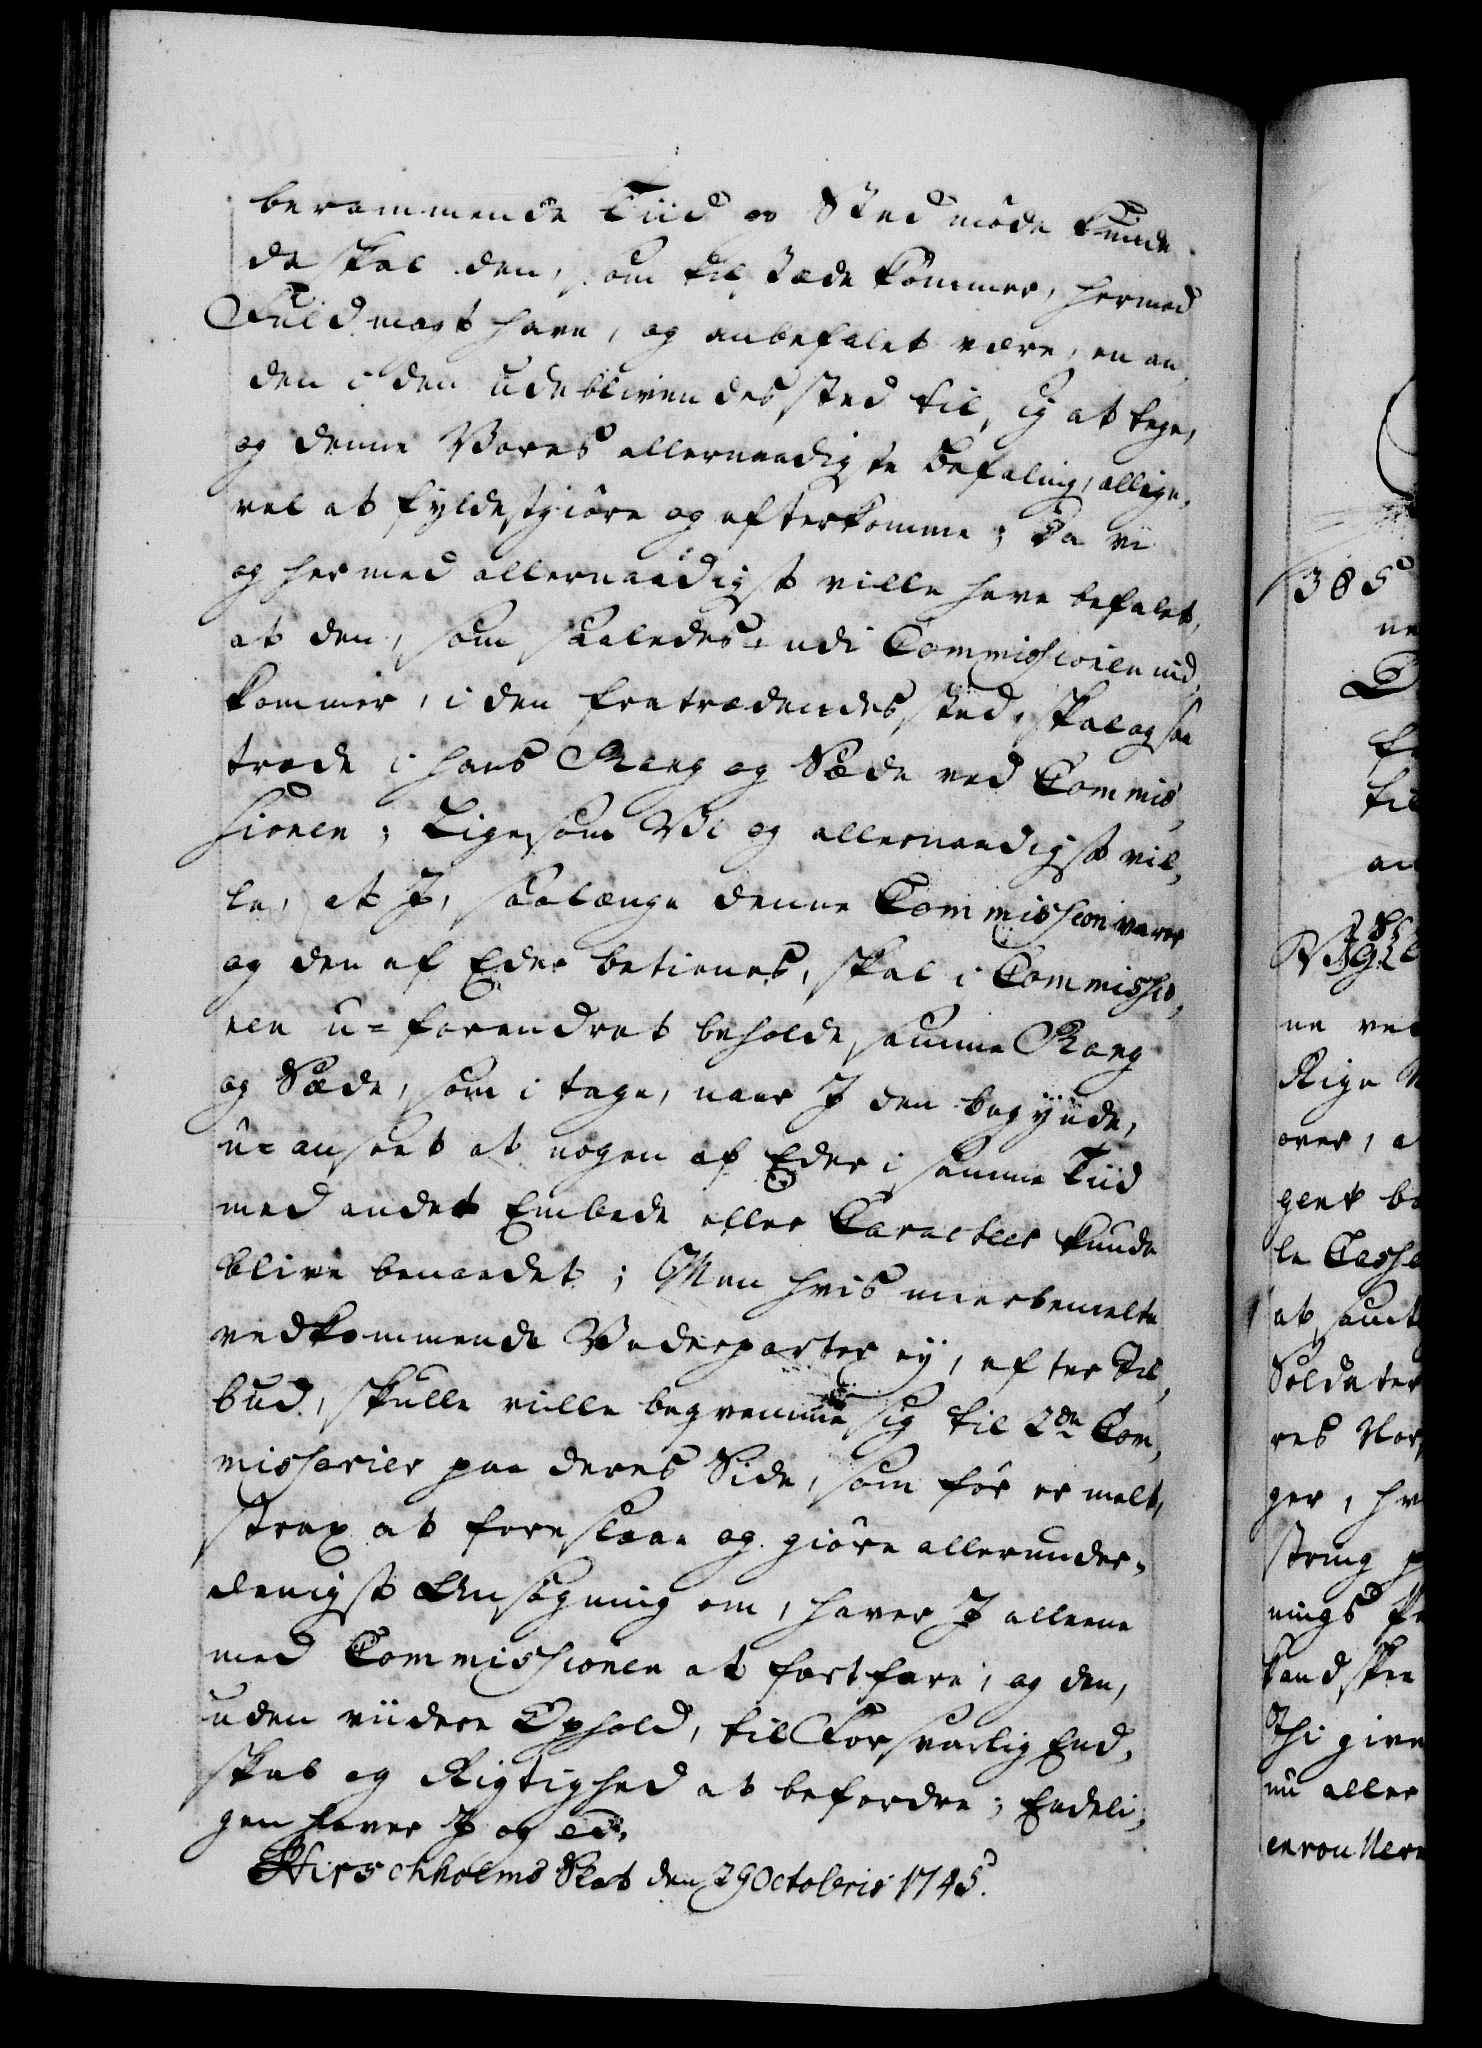 berammende Tiid og Sted møde kunde
da skal den, som tilstæde kommer, hermed
Fuldmagt have, og anbefalet være, en an,
den i den udeblivendes sted til sig at tage,
og denne Vores allernaadigste Befaling, allige,
vel at fyldestgiøre og efterkomme; Da vi
og hermed allernaadigst ville have befalet,
at den, som saaledes udi Commissionen ind,
kommer, i den fratrædendes sted, skal og saa
træde i hans Rang og Sæde ved Commis,
sionen; Ligesom Vi og allernaadigst vil,
le, at I, saalænge denne Commission varer
og den af Eder betienes, skal i Commissio,
nen u=forandret beholde samme Rang
og Sæde, som i tage, naar I den begynde,
u=anseet at nogen af Eder i samme Tiid
med andet Embede eller Caracteer kunde
blive benaadet; Men hvis meerbemelte
vedkommende Vederparter ey, efter Til,
bud, skulle ville beqvemme sig til 2de Com,
missarier paa deres Side, som før er melt,
strax at foreslaae og giøre allerunder-
danigst Ansøgning om, haver I alleene
med Commissionen at fortfare, og den,
uden viidere Ophold, til forsvarlig End,
skab og Rigtighed at befordre; Endeli,
gen haver I og etc.
Hirschholms Slot den 29 Octobris 1745.
385